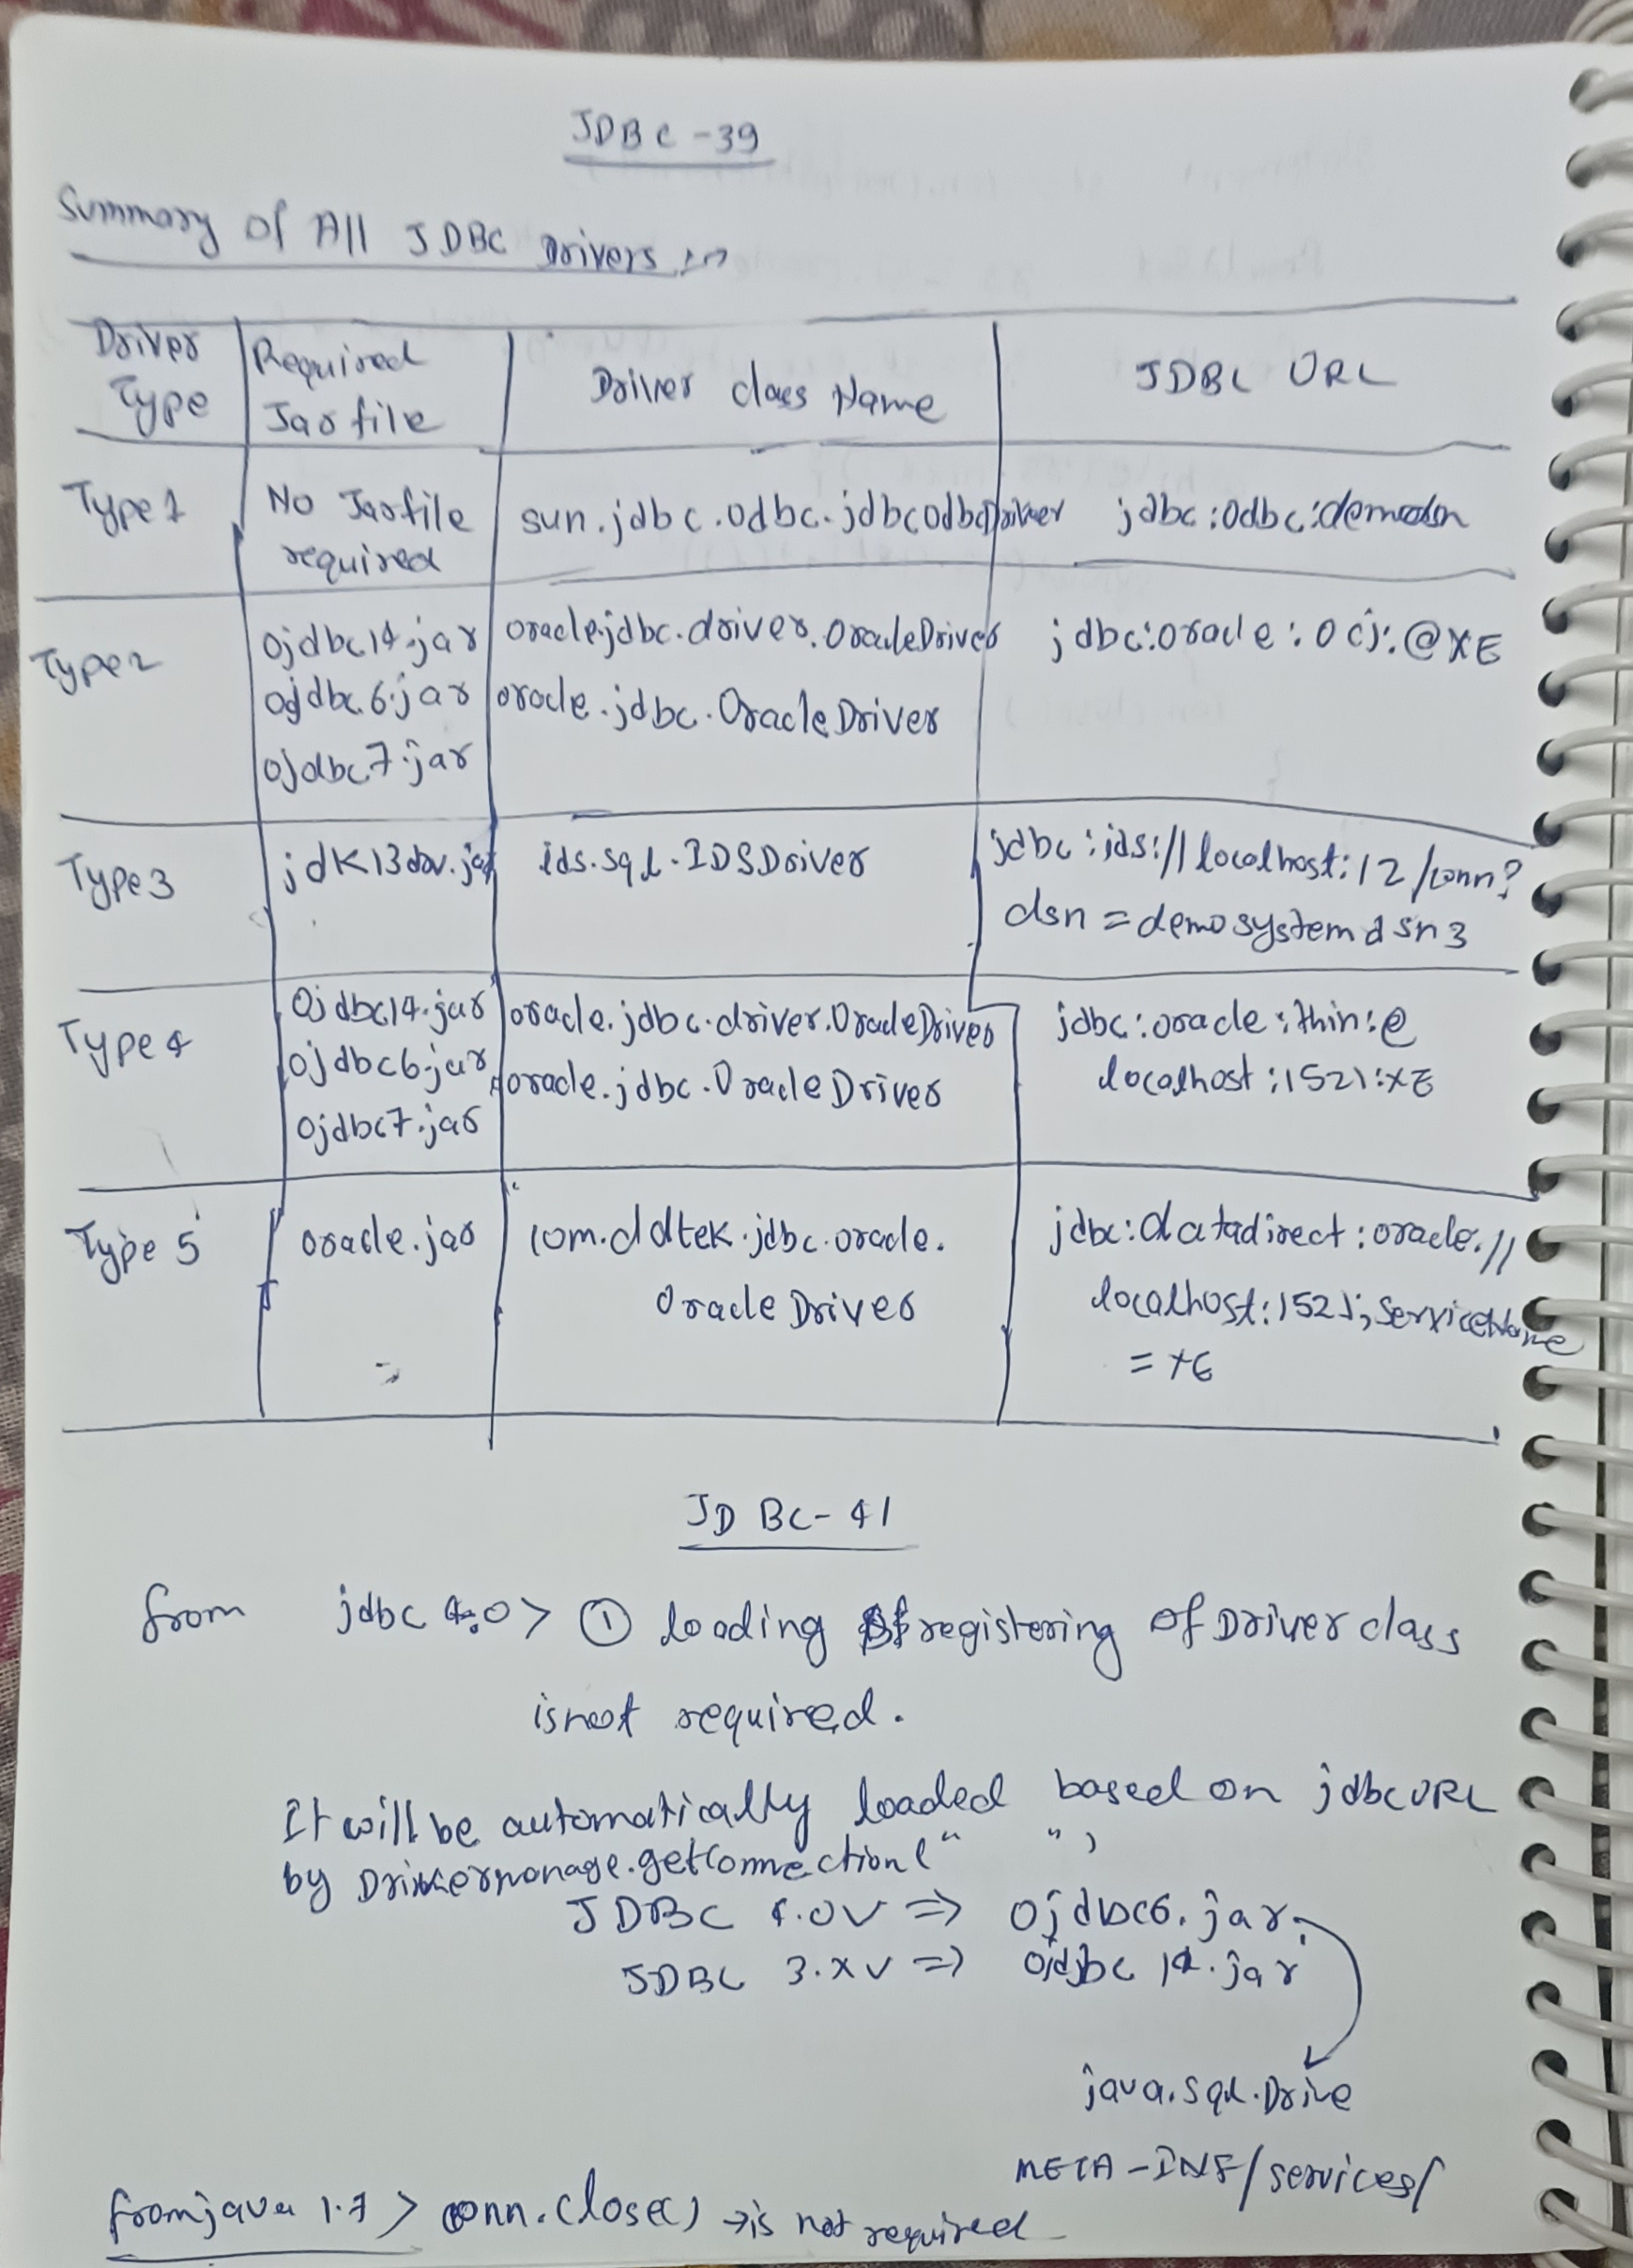 JDBC-39
Summary of All JDBC Drivers :-
Driver Type | Required Jar file | Driver class Name | JDBC URL
Type 1 | No Jar file required | sun.jdbc.odbc.jdbcodbcDriver | jdbc:odbc:demodsn
Type 2 | ojdbc14.jar ojdbc6.jar ojdbc7.jar | oracle.jdbc.driver.OracleDriver oracle.jdbc.OracleDriver | jdbc:oracle:oci:@XE
Type 3 | jdk13drv.jar | ids.sql.IDSDriver | jdbc:ids://localhost:12/conn? dsn = demosystemdsn3
Type 4 | ojdbc14.jar ojdbc6.jar ojdbc7.jar | oracle.jdbc.driver.OracleDriver oracle.jdbc.OracleDriver | jdbc:oracle:thin:@ localhost:1521:XE
Type 5 | oracle.jar | com.ddtek.jdbc.oracle. OracleDriver | jdbc:datadirect:oracle:// localhost:1521;ServiceName =XE
JDBC-41
from jdbc 4.0 > ① loading & registering of Driver class
is not required.
It will be automatically loaded based on jdbcURL
by Drivermanage.getConnection(" ")
JDBC 4.0V => ojdbc6.jar
JDBC 3.XV => ojdbc 14.jar
java.sql.Drive
META-INF/services/
from java 1.7 > conn.close() → is not required